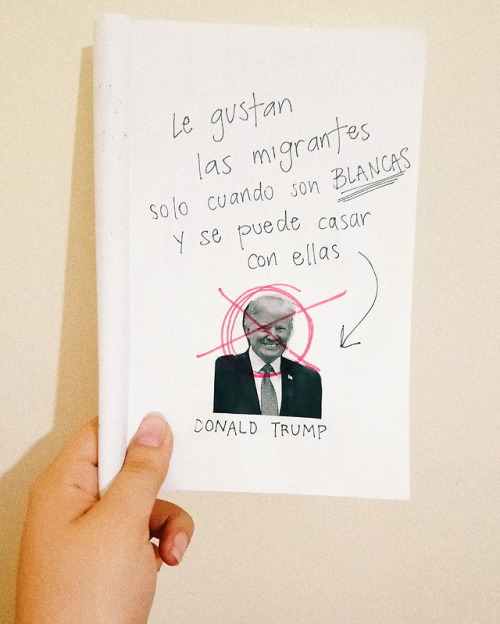 Le gustan
las migrantes
solo cuando son BLANCAS
y se puede casar
con ellas
DONALD TRUMP